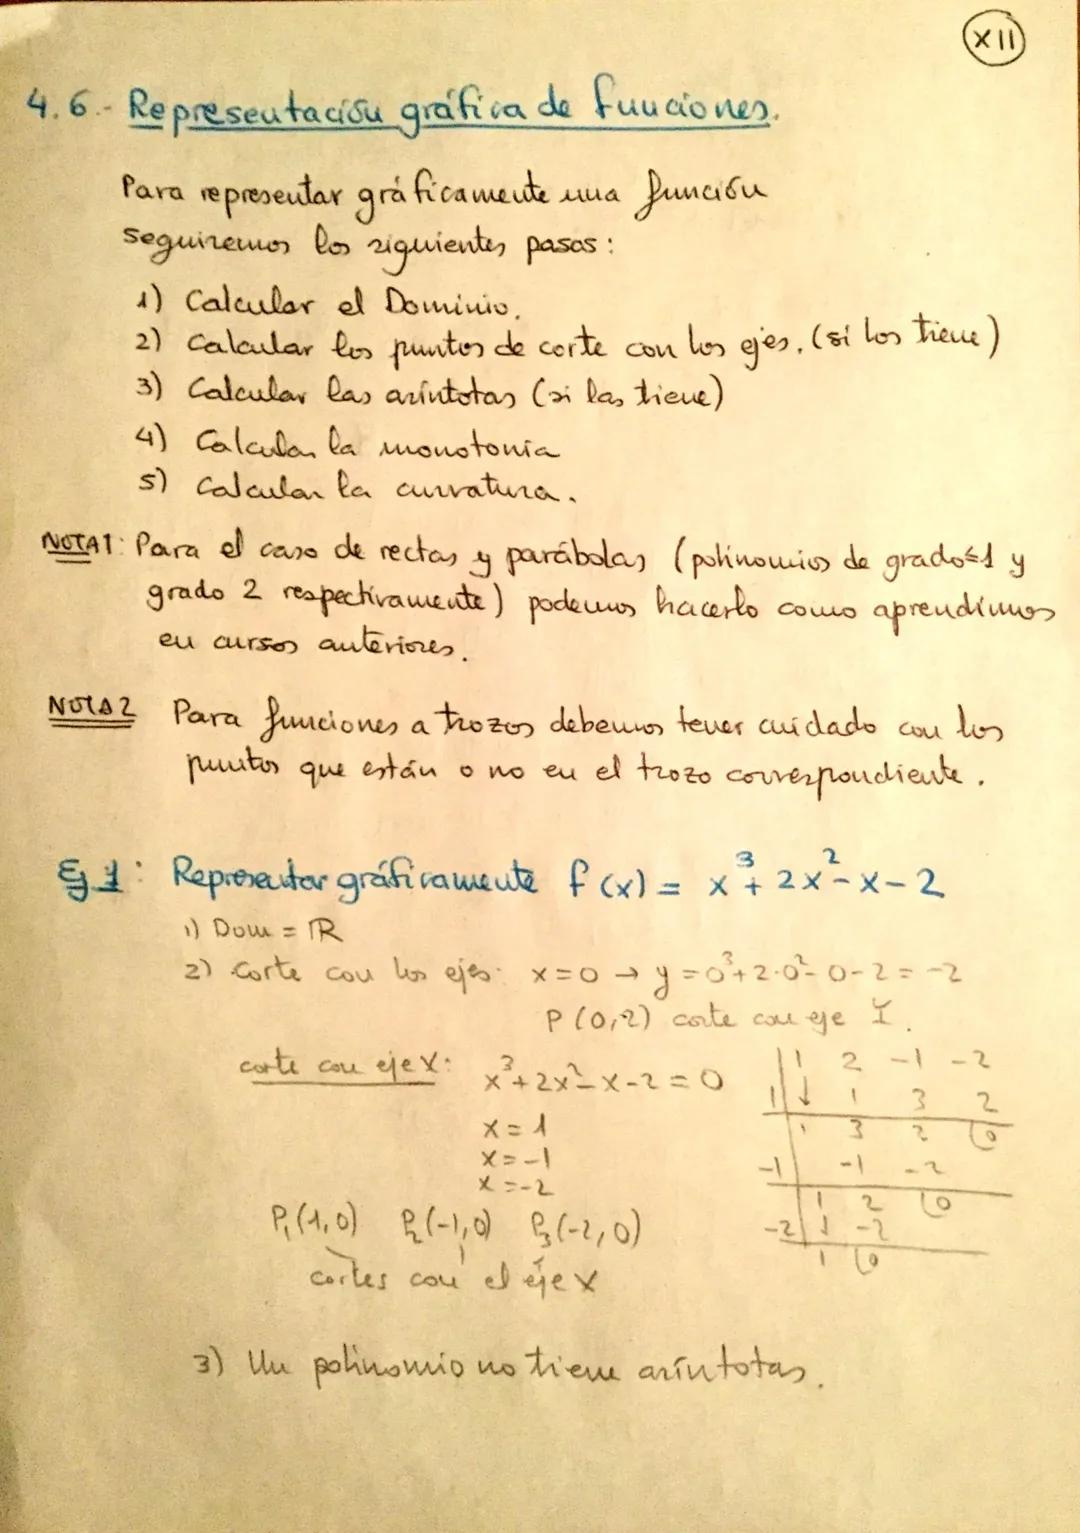 XII
4.6.- Representación gráfica de funciones.
Para representar gráficamente una función
seguiremos los siguientes pasos:
1) Calcular el Dominio.
2) Calcular los puntos de corte con los ejes. (si los tiene)
3) Calcular las asíntotas (si las tiene)
4) Calcular la monotonía
5) Calcular la curvatura.
NOTA1: Para el caso de rectas y parábolas (polinomios de grado≤1 y
grado 2 respectivamente) podemos hacerlo como aprendimos
en cursos anteriores.
NOTA2 Para funciones a trozos debemos tener cuidado con los
puntos que están o no en el trozo correspondiente.
Ej 1: Representar gráficamente f(x) = x³+2x²-x-2
1) Dom = ℝ
2) Corte con los ejes: x=0 → y=0³+2·0²-0-2=-2
P(0,2) corte con eje Y.
corte con eje X: x³+2x²-x-2=0
x=1
x=-1
x=-2
P₁(1,0) P₂(-1,0) P₃(-2,0)
cortes con el eje X
1 2 -1 -2
1 ↓ 1 3 2
1 3 2 0
-1 -1 -2
1 2 0
-2 ↓ -2
1 0
3) Un polinomio no tiene asíntotas.